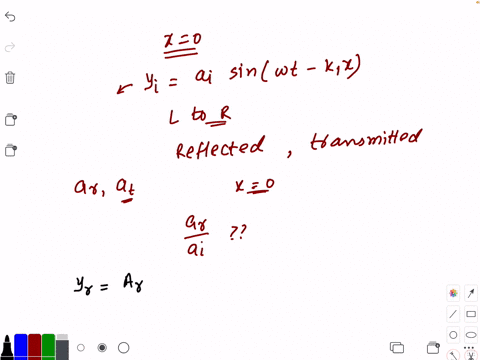 x=0
yi = ai sin(ωt - k1x)
L to R
Reflected , transmitted
ar, at x=0
ar
ai ??
yr = Ar